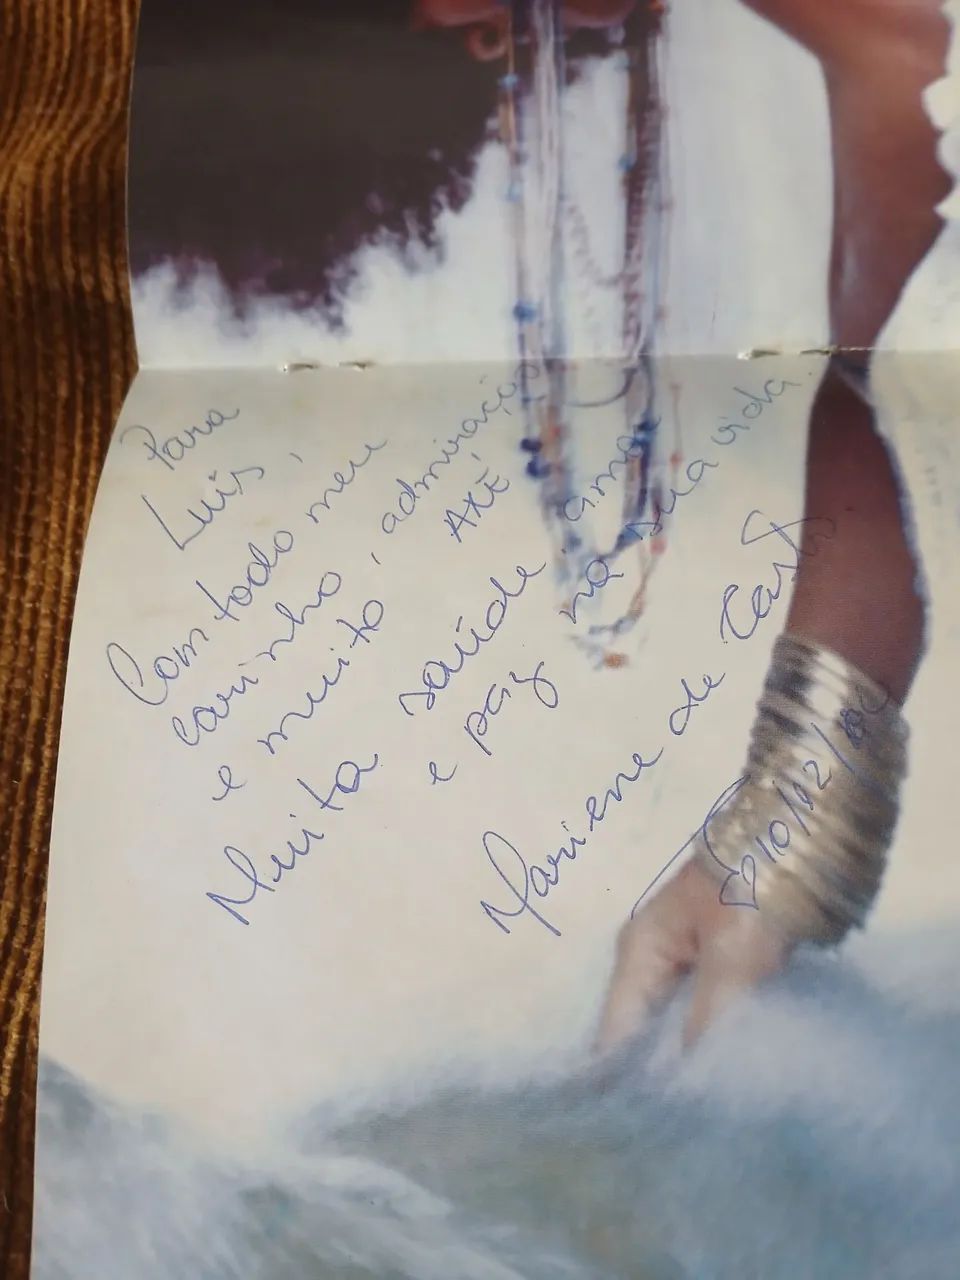 Para
Luis,
Com todo meu
carinho, admiração
e muito AXÉ,
Muita saúde, amor
e paz na sua vida.
Mariene de Castro
10/12/